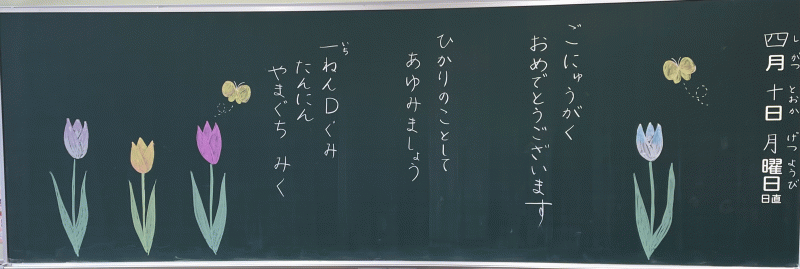 四月十日月曜日
しがつとおかげつようび
日直
ごにゅうがく
おめでとうございます
ひかりのことして
あゆみましょう
一ねんDぐみ
いち
たんにん
やまぐちみく